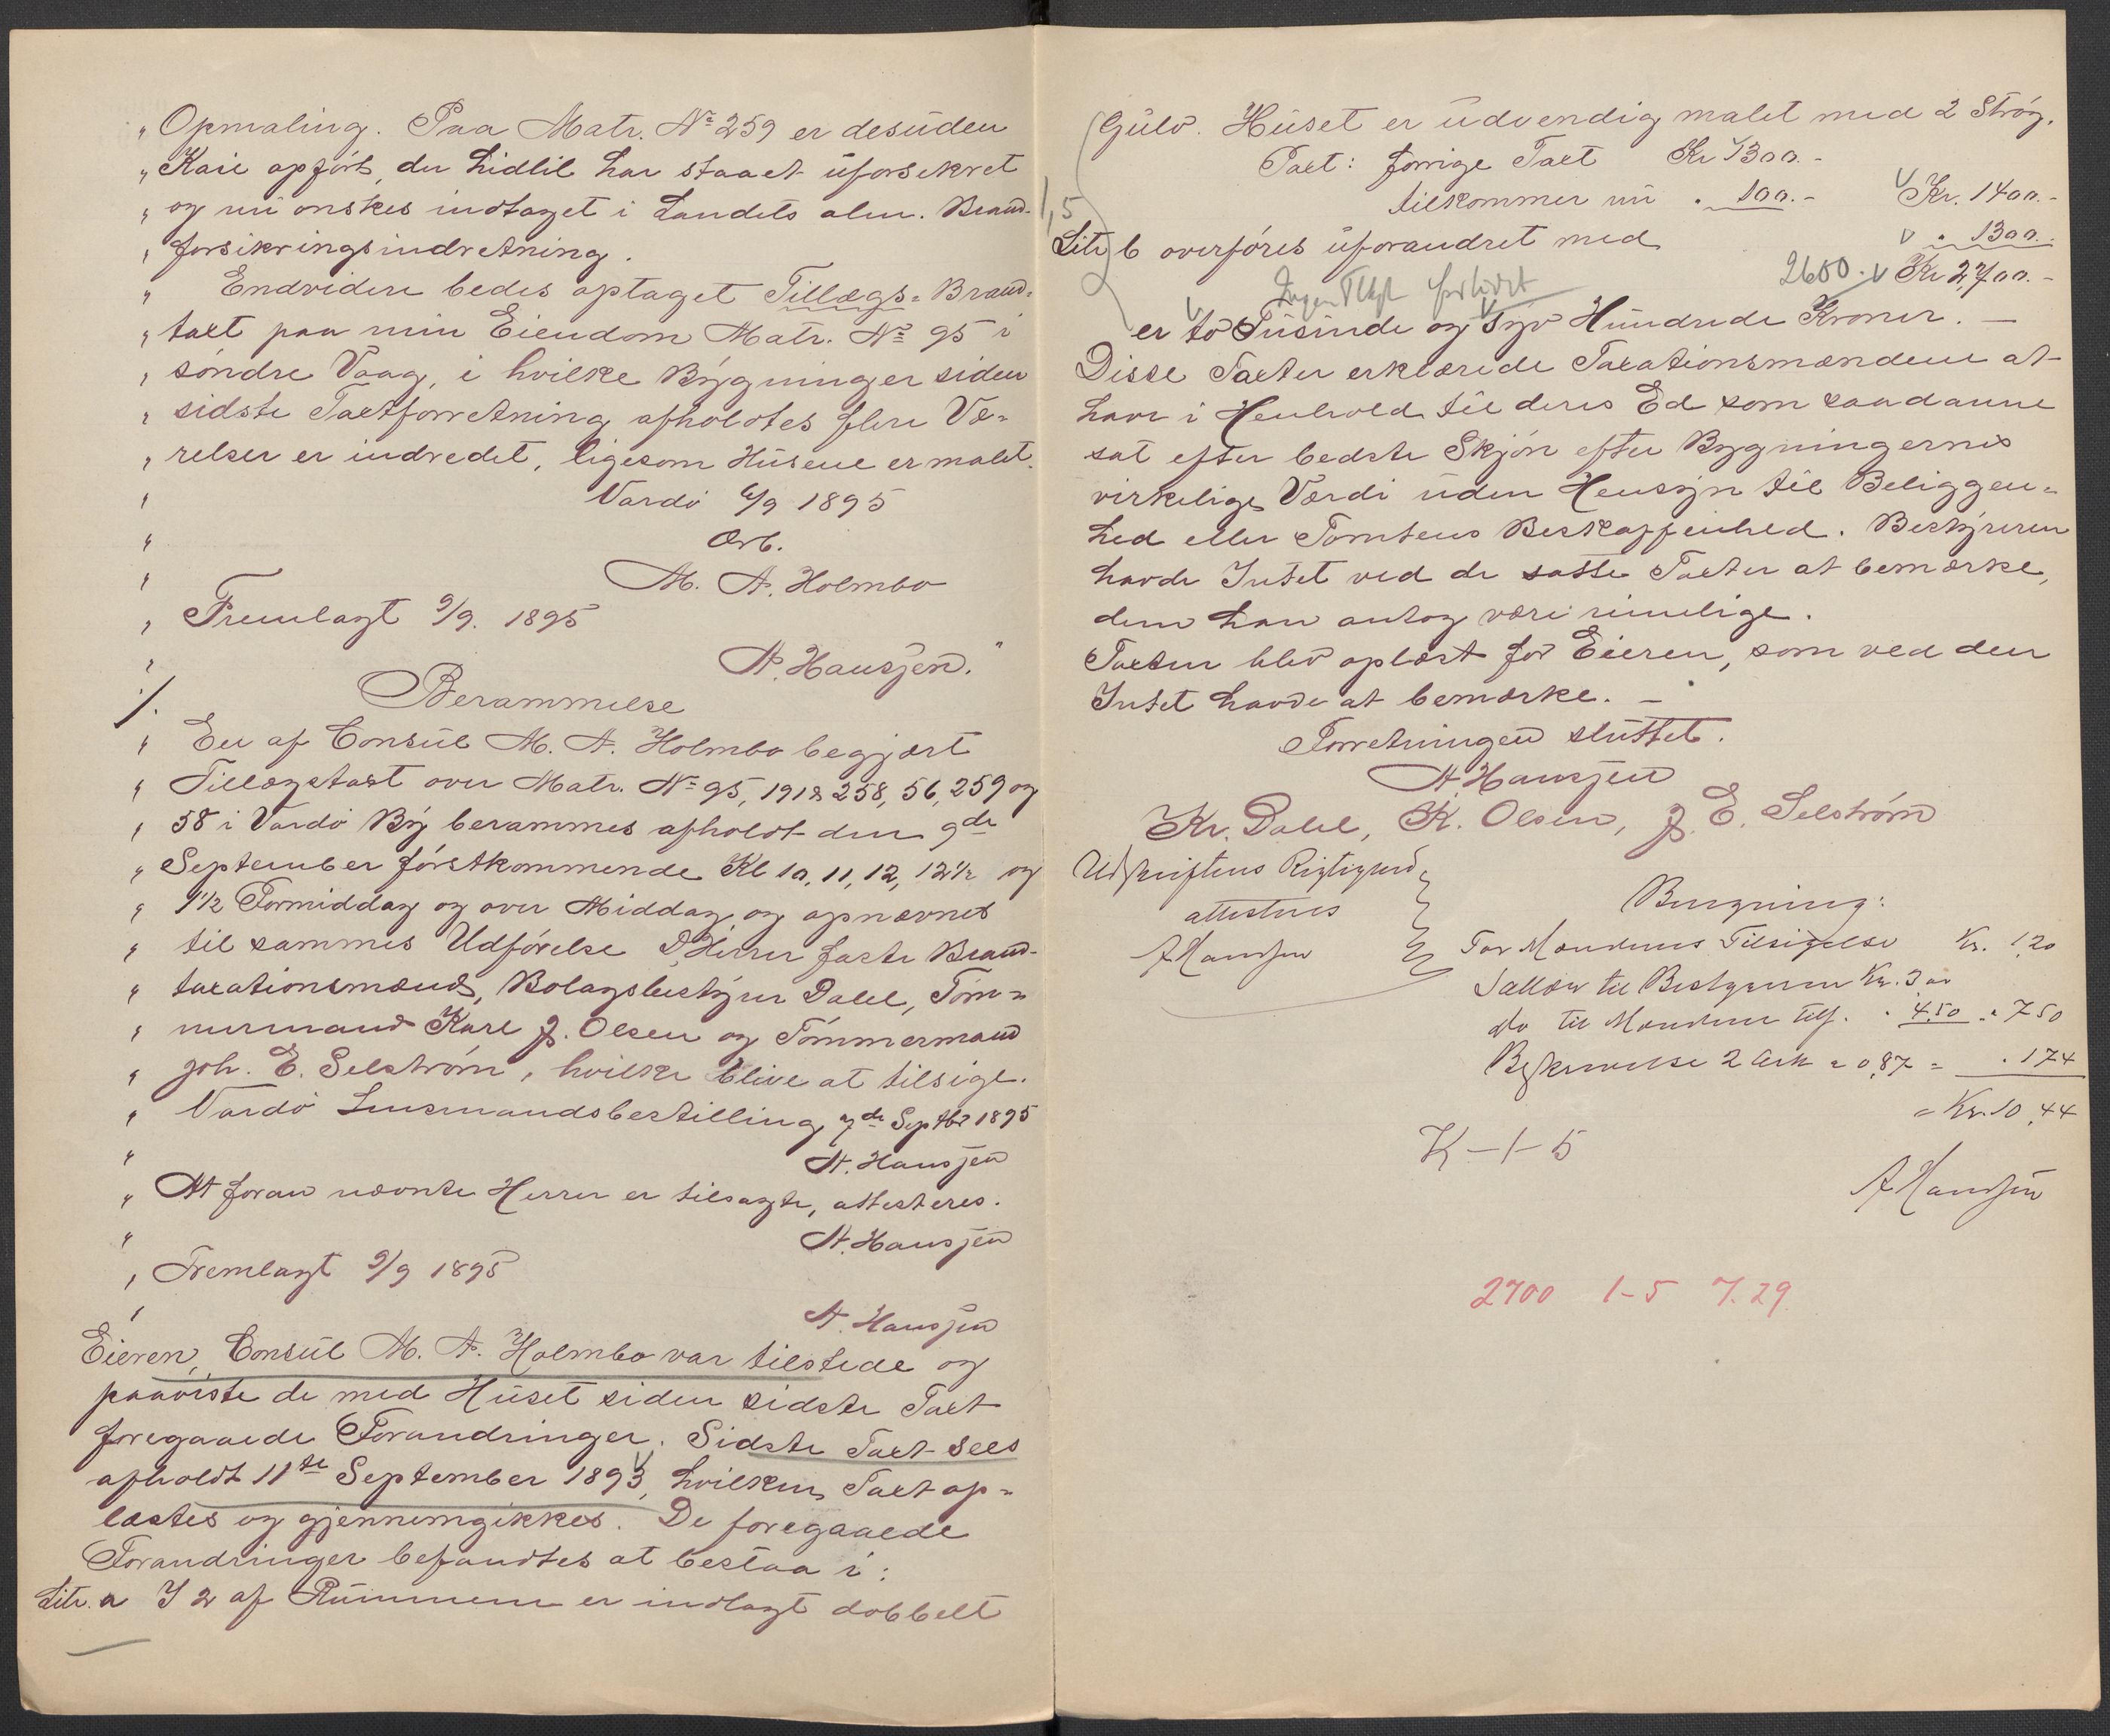 " Opmaling. Paa Matr. No 259 er desuden
" Kaie opført, der hidtil har staaet uforsikret
" og nu ønskes indtaget i Landets alm. Brand-
" forsikringsindretning.
" Endvidere bedes optaget Tillægs-Brand-
" taxt paa min Eiendom Matr. No 95 i
" søndre Vaag, i hvilke Bygninger siden
" sidste Taxtforretning afholdtes flere Væ-
" relser er indredet, ligesom Husene er malet.
" Vardø 6/9 1895
" Ærb.
" M. A. Holmbo
" Fremlagt 9/9. 1895
" A. Hansjen."
./. Berammelse
" En af Consul M. A. Holmbo begjært
" Tillægstaxt over Matr. No 95, 191 & 258, 56, 259 og
" 58 i Vardø By berammes afholdt den 9de
" September førstkommende Kl 10, 11, 12, 12½ og
" 1½ Formiddag og over Middag og opnævnes
" til sammes Udførelse D'Herrer faste Brand-
" taxationsmænd, Bolagsbestyrer Dahl, Tøm-
" mermand Karl J. Olsen og Tømmermand
" Joh. E. Selstrøm, hvilke blive at tilsige.
" Vardø Lensmandsbestilling 7de Septbr 1895
" A. Hansjen
" At foran nævnte Herrer er tilsagte, attesteres.
" A. Hansjen
" Fremlagt 9/9 1895
" A. Hansjen
Eieren, Consul M. A. Holmbo var tilstede og
paaviste de med Huset siden sidste Taxt
foregaaede Forandringer. Sidste Taxt sees
afholdt 11te September 1893, hvilken Taxt op-
læstes og gjennemgikkes. De foregaaede
Forandringer befandtes at bestaa i:
Litr. a I 2 af Rummene er indlagt dobbelt
Gulv. Huset er udvendig malet med 2 Strøg.
Taxt: forrige Taxt Kr 1300.-
tilkommer nu " 100.- Kr. 1400.-
1,5
Litr b overføres uforandret med " 1300.-
2600. Kr 2,700.-
Ingen Tllgt
er to Tusinde og Syv Hundrede Kroner. -
Disse Taxter erklærede Taxationsmændene at
have i Henhold til deres Ed som saadanne
sat efter bedste Skjøn efter Bygningernes
virkelige Værdi uden Hensyn til Beliggen-
hed eller Tomtens Beskaffenhed. Bestyreren
havde Intet ved de satte Taxter at bemærke,
dem han antog være rimelige.
Taxten blev oplæst for Eieren, som ved den
Intet havde at bemærke. -
Forretningen sluttet.
A. Hansjen
Kr. Dahl, K. Olsen, J. E. Selstrøm
Udskriftens Rigtighed
attesteres
A Hansjen
Beregning:
For Mændenes Tilsigelse Kr. 1,20
Sallær til Bestyreren Kr. 3 00
do til Mændene tils. " 4,50 " 7 50
Beskrivelse 2 Ark a 0,87 = " 1 74
= Kr. 10,44
K-1-5
A Hansjen
2700 1-5 7.29